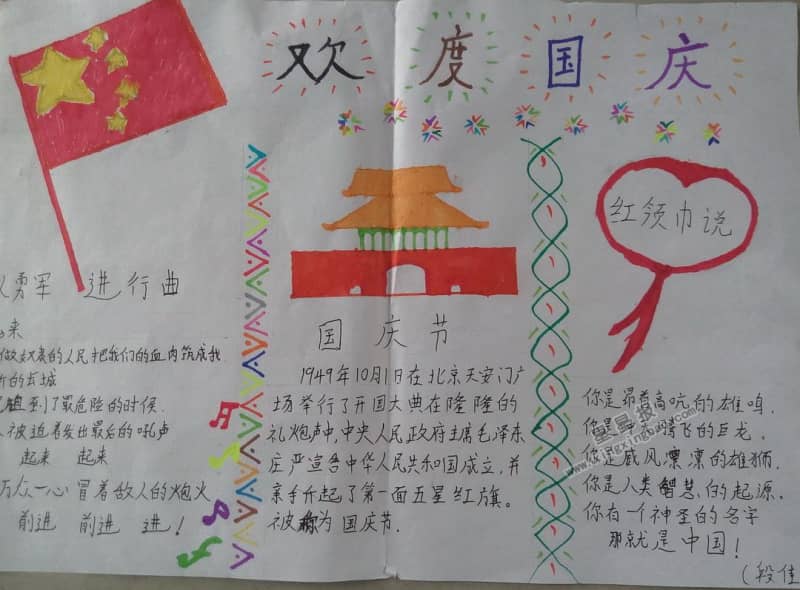 欢度国庆
红领巾说
勇军 进行曲
来
做奴隶的人民把我们的血肉筑成我
的长城
到了最危险的时候.
被迫着发出最后的吼声
起来 起来
万众一心冒着敌人的炮火
前进 前进 进!
国庆节
1949年10月1日在北京天安门广
场举行了开国大典在隆隆的
礼炮声中,中央人民政府主席毛泽东
庄严宣告中华人民共和国成立,并
亲手升起了第一面五星红旗。
被称为国庆节.
你是昂首高吭的雄鸡.
你是 腾飞的巨龙.
你是威风凛凛的雄狮.
你是人类智慧的起源.
你有一个神圣的名字
那就是中国!
(段佳